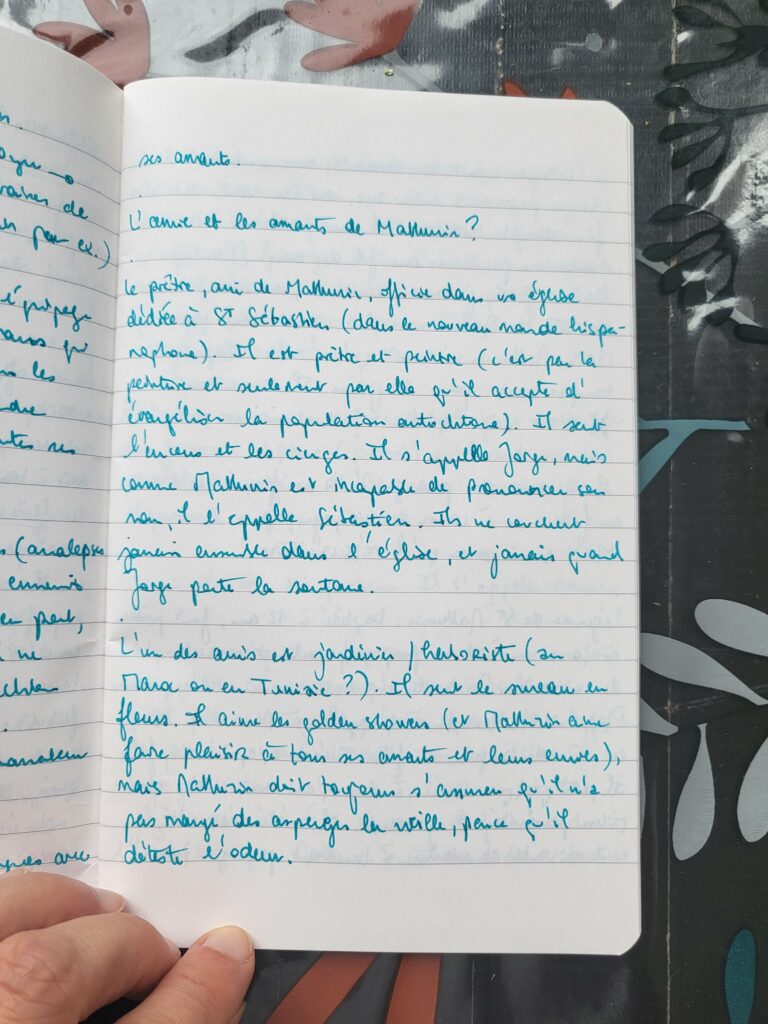 n.
raines de
par ex.)
l'équipage
les
(analepses
ennemis
peut,
ne
avec
ses amants.
L'amie et les amants de Mathurin ?
Le prêtre, ami de Mathurin, officie dans une église
dédiée à St Sébastien (dans le nouveau monde hispa-
nophone). Il est prêtre et peintre (c'est par la
peinture et seulement par elle qu'il accepte d'
évangéliser la population autochtone). Il sent
l'encens et les cierges. Il s'appelle Jorge, mais
comme Mathurin est incapable de prononcer son
nom, il l'appelle Sébastien. Ils ne couchent
jamais ensemble dans l'église, et jamais quand
Jorge porte la soutane.
L'un des amis est jardinier / herboriste (au
Maroc ou en Tunisie ?). Il sent le sureau en
fleurs. Il aime les golden showers (et Mathurin aime
faire plaisir à tous ses amants et leurs envies),
mais Mathurin doit toujours s'assurer qu'il n'a
pas mangé des asperges la veille, parce qu'il
déteste l'odeur.